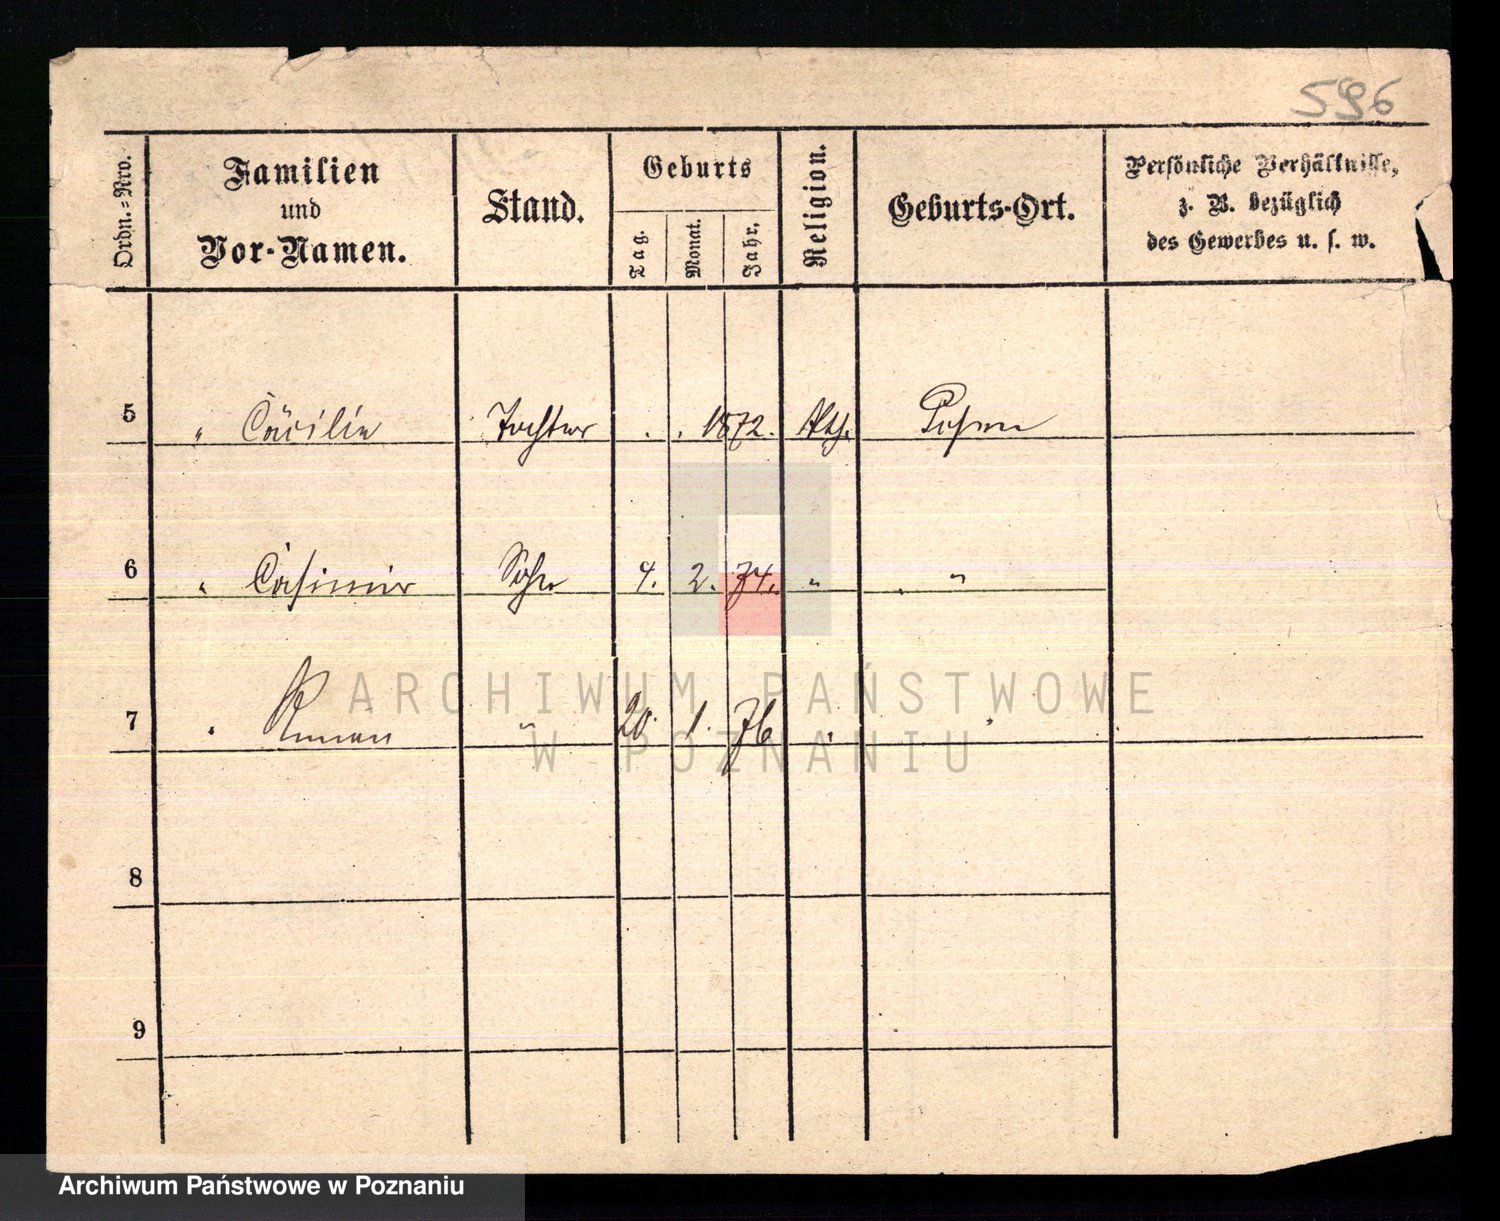 596
Ordn.-Nro.
Familien
und
Vor-Namen.
Stand.
Geburts
Tag.
Monat.
Jahr.
Religion.
Geburts-Ort.
Persönliche Verhältnisse,
z. B. bezüglich
des Gewerbes u. s. w.
5 " Cäcilie Tochter . . 1872. Kth. Posen
6 " Casimir Sohn 4. 2. 74. " "
7 " Roman " 20. 1. 76 " "
8
9
ARCHIWUM PAŃSTWOWE
W POZNANIU
Archiwum Państwowe w Poznaniu